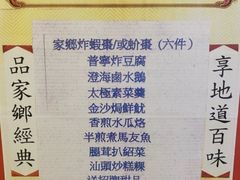 品家鄉經典
家鄉炸蝦棗/或蚧棗 (六件)
普寧炸豆腐
澄海鹵水鵝
太極素菜羹
金沙焗鮮魷
香煎水瓜烙
半煎煮馬友魚
腿茸扒紹菜
汕頭炒糕粿
享地道百味